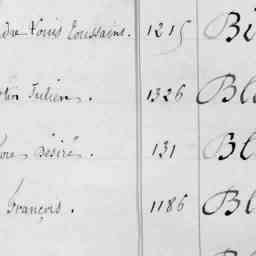 Louis Toussaint. 1215 Bi
Julien. 1326 Bl
Désiré. 131 Bl
François. 1186 Bl